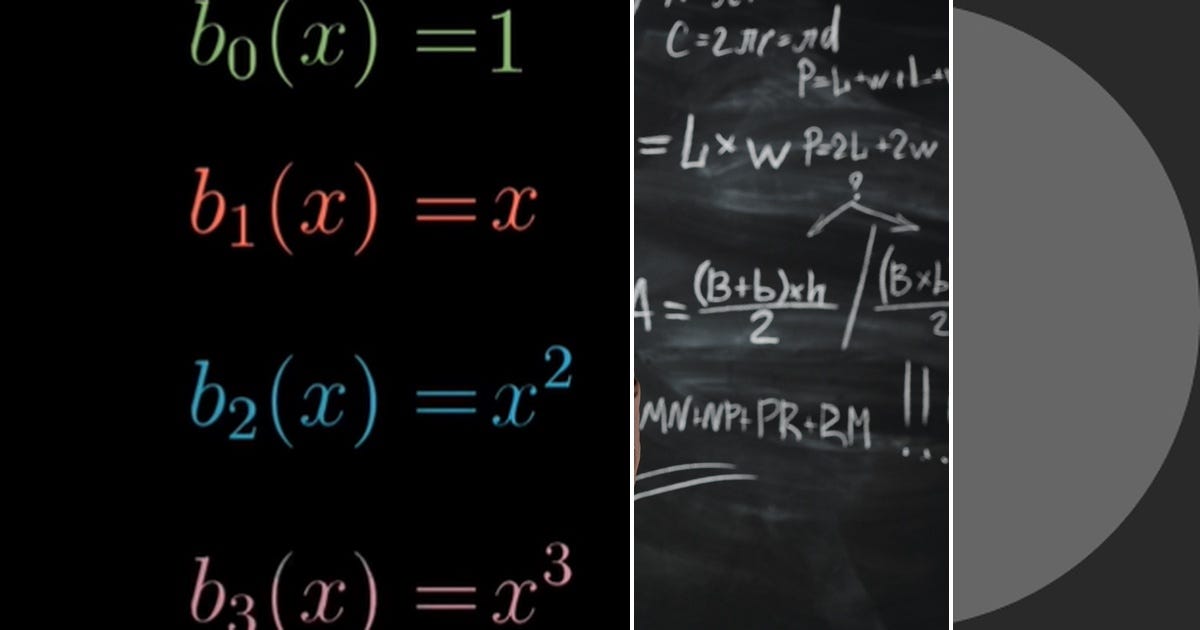 b₀(x) = 1
b₁(x) = x
b₂(x) = x²
b₃(x) = x³
C=2πr=πd
P=L+w+L+
= L×w P=2L+2w
?
A = (B+b)×h / 2 / (B×b / 2
MN+NP+PR+RM